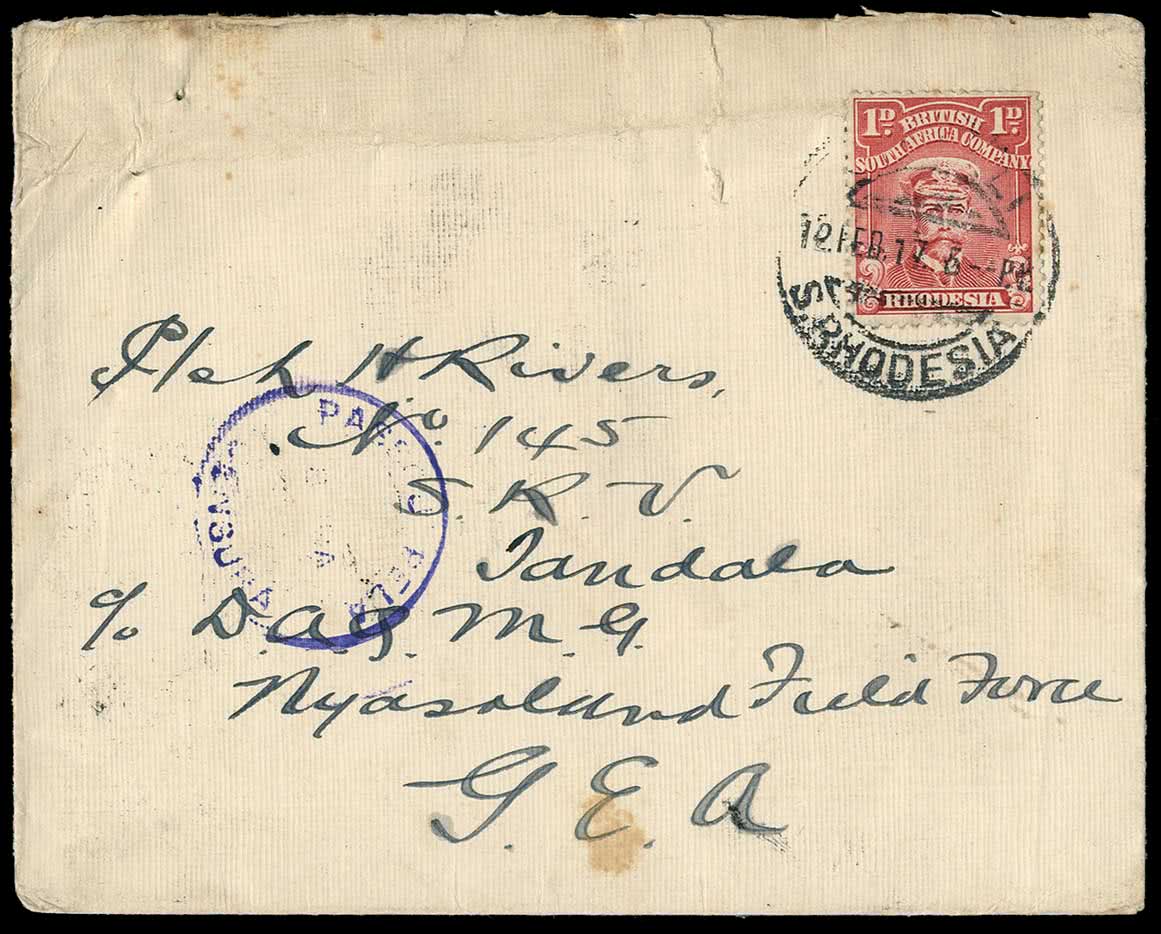 1D. BRITISH 1D.
SOUTH AFRICA COMPANY
RHODESIA
12 FEB 17 6 PM
S. RHODESIA
H Rivers,
No. 145
S. R. V.
Tandala
c/o D.A.Q.M.G.
Nyasaland Field Force
G. E. A
PASSED FIELD